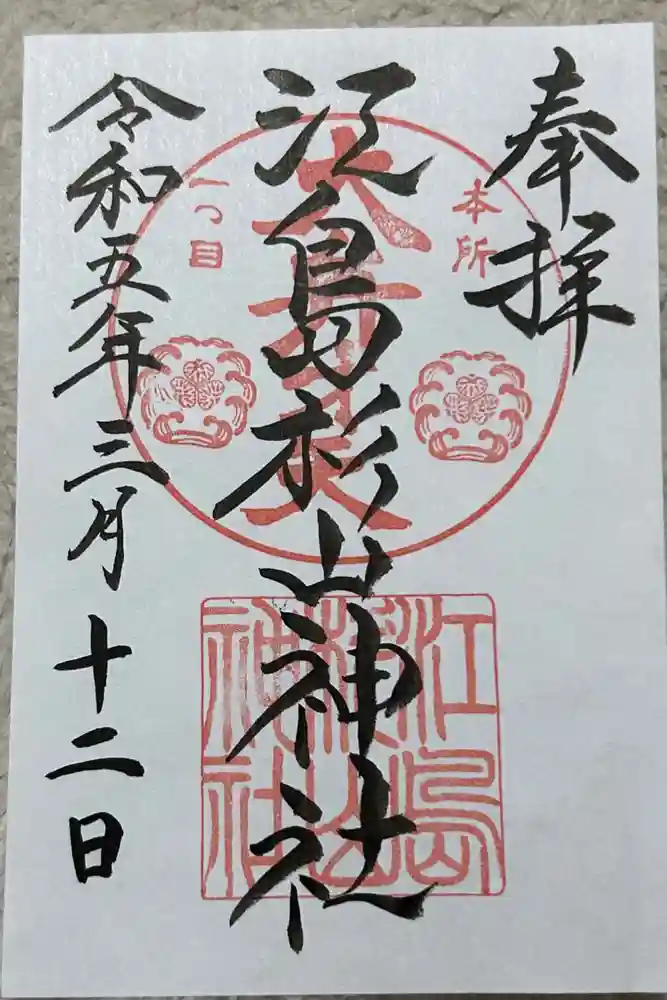 奉拝
本所
一つ目
江島杉山神社
大弁才天
江島
杉山
神社
令和五年三月十二日